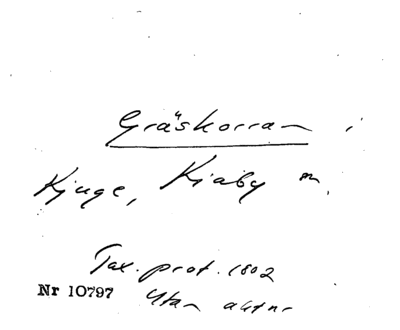 Gräskorran i
Kjuge, Kiaby sn,
Tax. prot. 1802
Nr 10797 utan aktnr